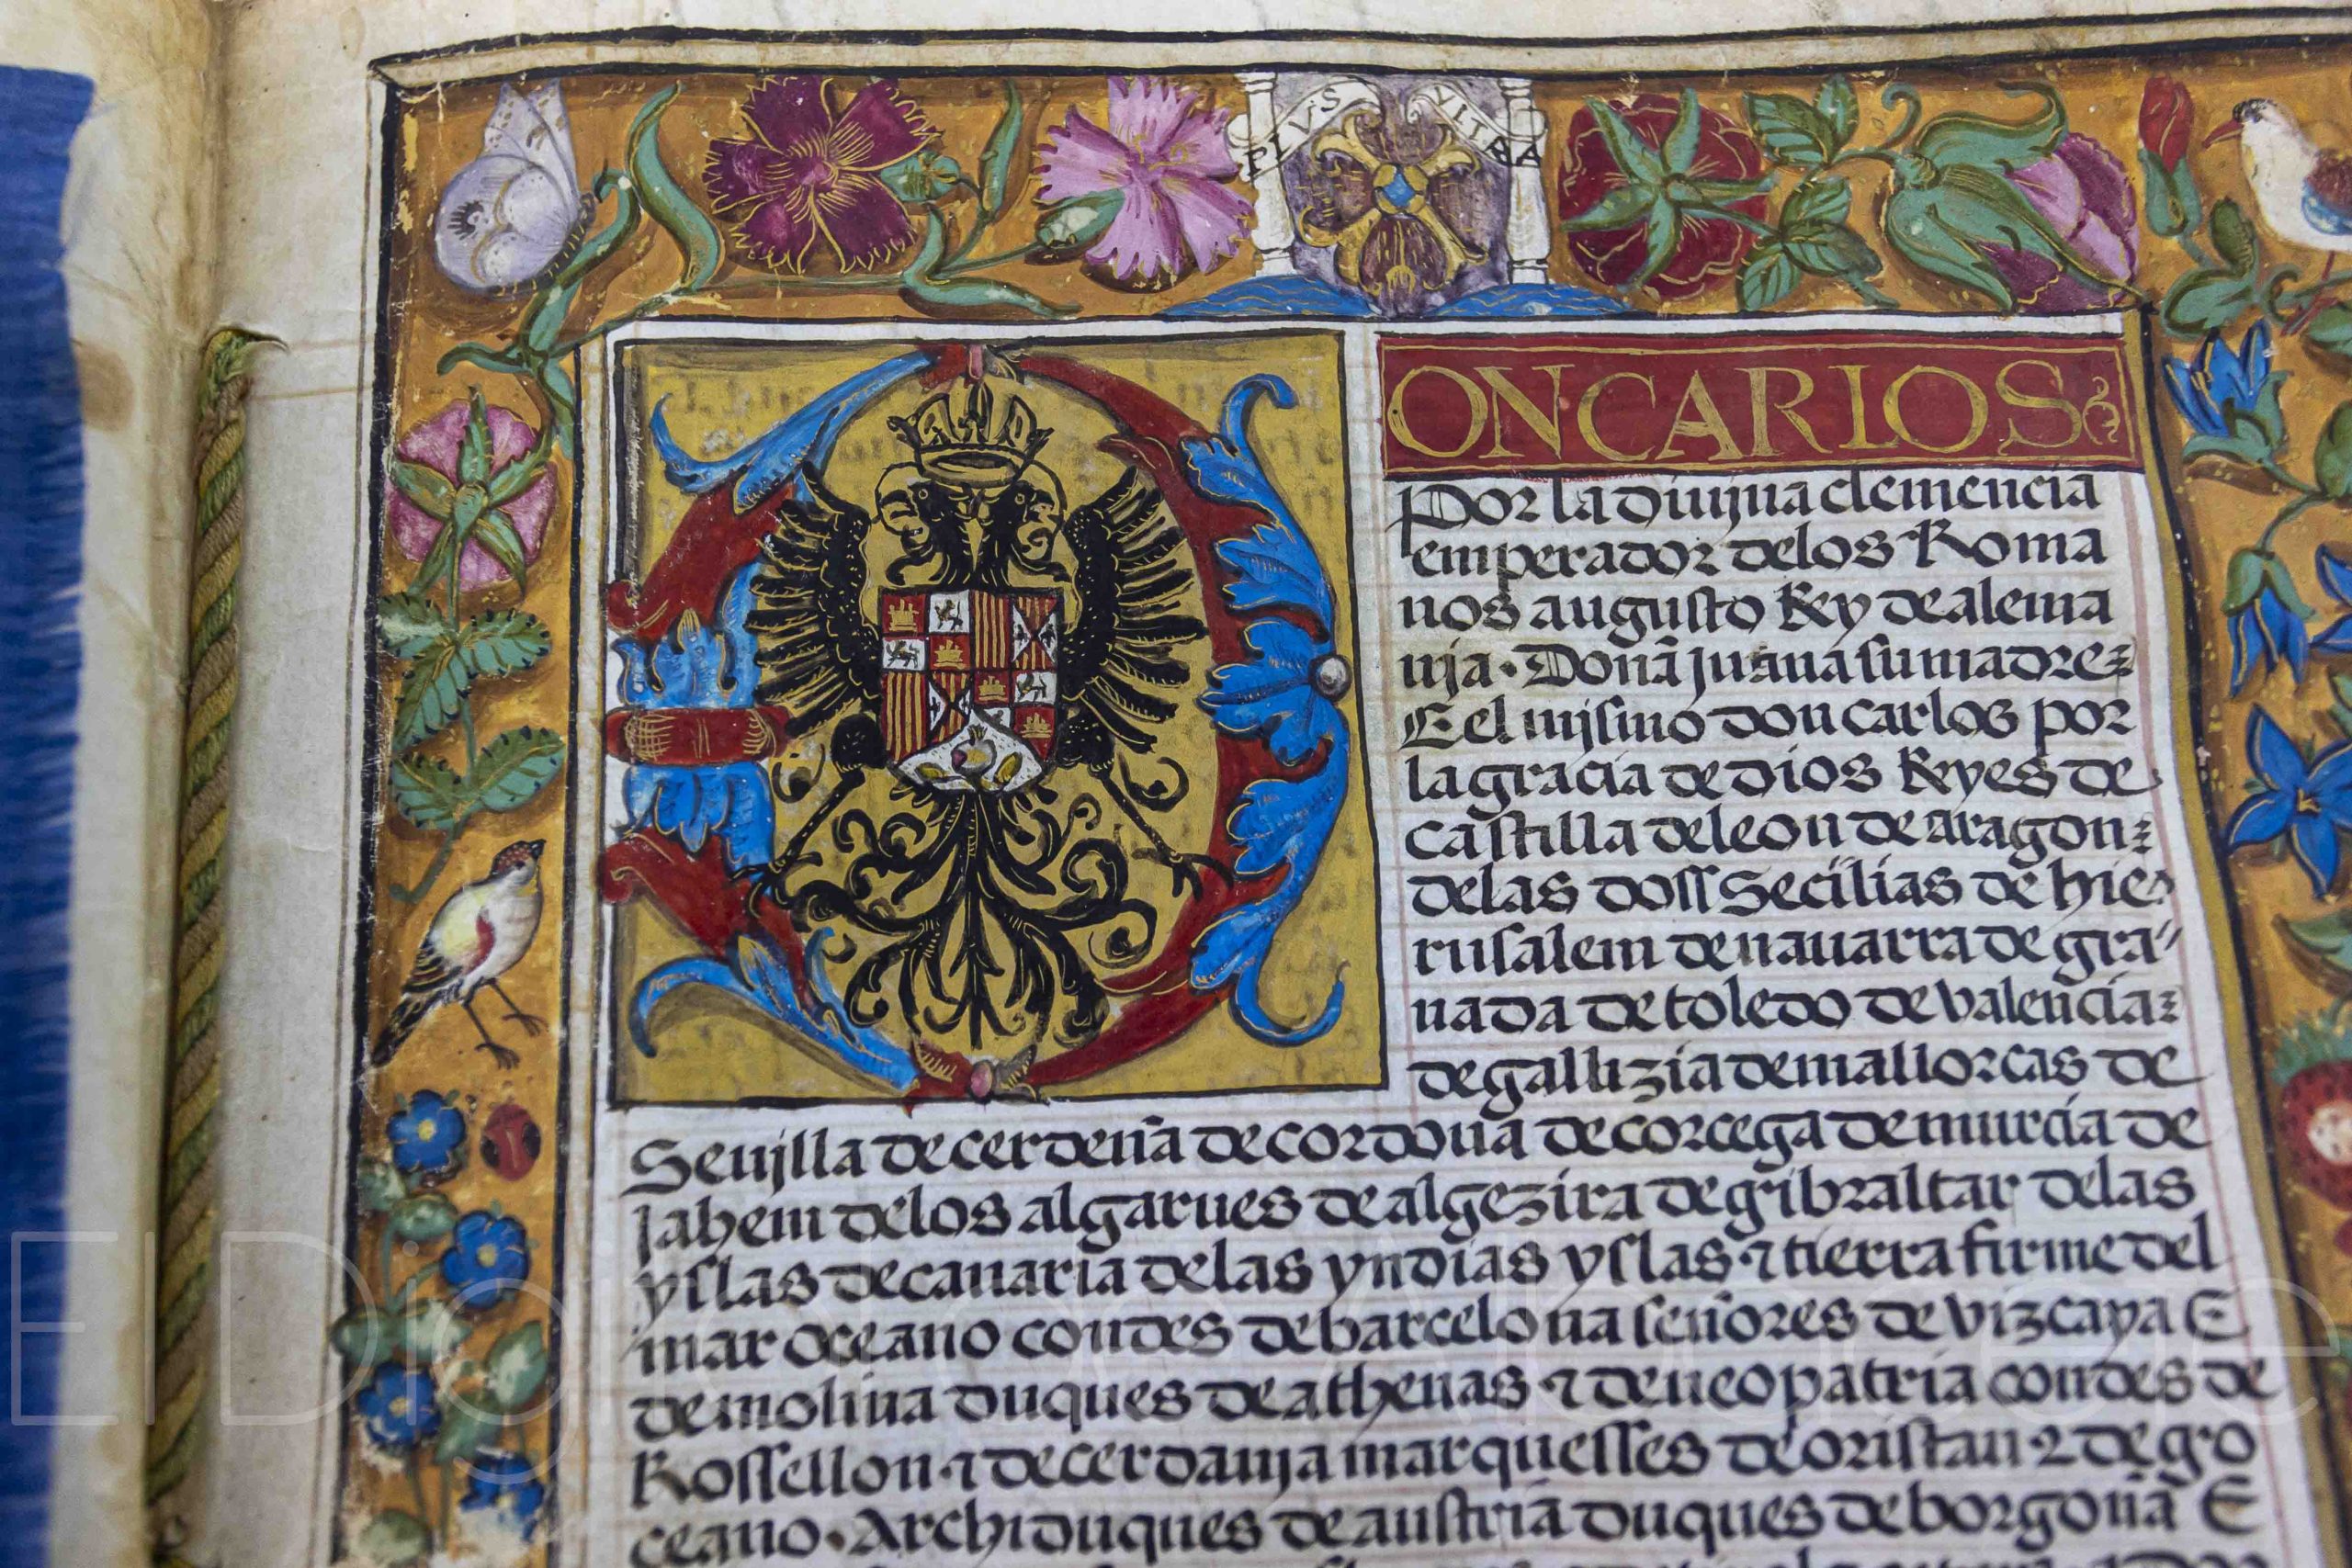 PLVS VLTRA
ONCARLOS
Por la diujna clemencia
emperador delos Roma
nos augusto Rey de alema
nja. Doña juana su madre
E el mjsmo don carlos por
la gracia de dios Reyes de
Castilla de leon de aragon
delas doss Secilias de hie
rusalem de nauarra de gra
nada de toledo de valencia
de gallizia de mallorcas de
Seujlla de cerdeña de cordoua de corcega de murcia de
Jahem delos algarues de algezira de gibraltar delas
yslas de canaria delas yndias yslas ⁊ tierra firme del
mar oceano condes de barcelona señores de vizcaya E
de molina duques de athenas ⁊ de neopatria condes de
Rossellon ⁊ de cerdanja marquesses de oristan ⁊ de go
ceano. Archiduques de austria duques de borgoña E
El Digital de Albacete